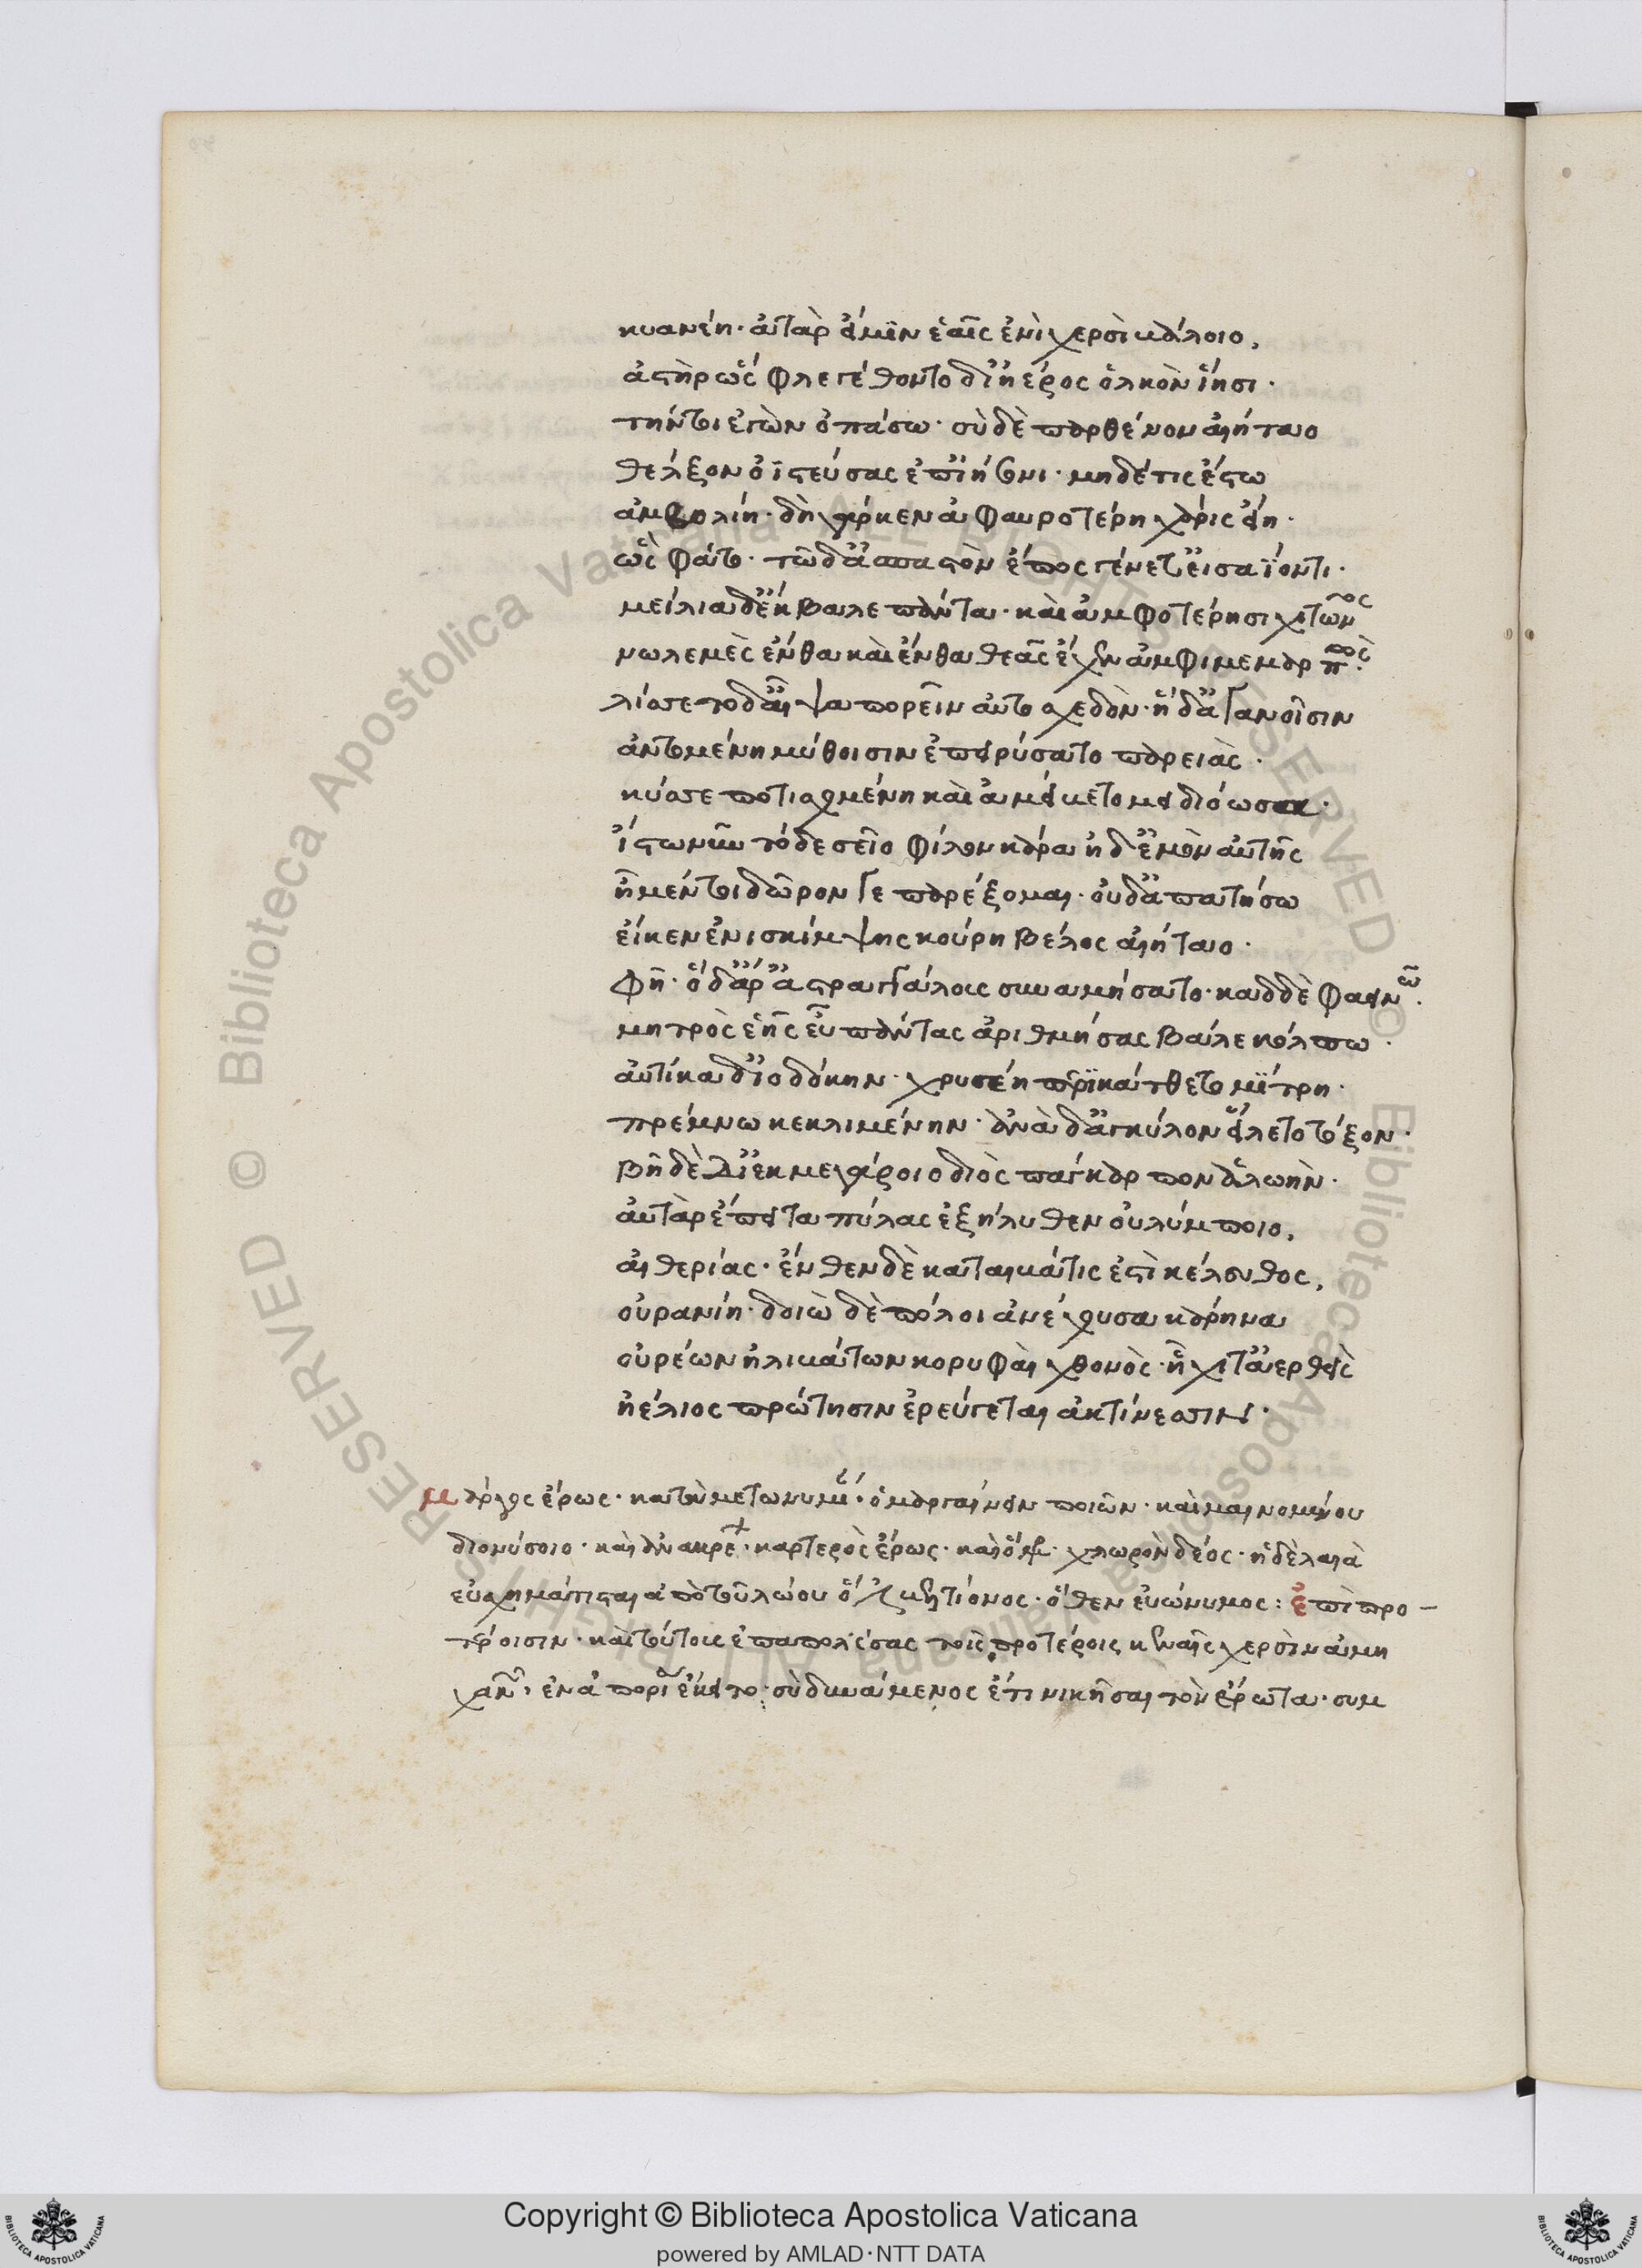 κυανέη· ἀτὰρ εἴ μιν ἑαῖς ἐνὶ χερσὶ βάλοιο,
ἀστὴρ ὣς φλεγέθοντα δι' ἠέρος ὁλκὸν ἵησι·
τήν τοι ἐγὼν ὀπάσω· σὺ δὲ παρθένον αἰήταο
θέλξον ὀϊστεύσας ἐπ' ἰήσονι· μηδέ τις ἔστω
ἀμβολίη· δὴ γάρ κεν ἀφαυροτέρη χάρις εἴη·
ὣς φάτο· τῶ δ' ἀσπαστὸν ἔπος γένετ' εἰσαΐοντι·
μείλια δ' ἔκβαλε πάντα· καὶ ἀμφοτέρησι χιτῶνος
νωλεμὲς ἔνθα καὶ ἔνθα θεᾶς ἔχεν ἀμφιμεμαρπώς·
λίσσετο δ' αἶψα πορεῖν αὐτοσχεδόν· ἡ δ' ἀγανοῖσιν
ἀντομένη μύθοισιν ἐπειρύσατο παρειάς·
κύσσε ποτισχομένη καὶ ἀμείβετο μειδιόωσα·
ἴστω νῦν τόδε σεῖο φίλον κάρα ἠδ' ἐμὸν αὐτῆς
ἦ μέν τοι δῶρόν γε παρέξομαι· οὐδ' ἀπατήσω
εἴ κεν ἐνισκίμψης κούρη βέλος αἰήταο·
φῆ· ὁ δ' ἄρ' ἀστραγάλους συναμήσατο· καδδὲ φαεινῶ·
μητρὸς ἑῆς εὖ πάντας ἀριθμήσας βάλε κόλπω·
αὐτίκα δ' ἰοδόκην· χρυσέη περικάτθετο μίτρη·
πρέμνω κεκλιμένην· ἀνὰ δ' ἀγκύλον εἵλετο τόξον·
βῆ δὲ δι' ἐκ μεγάροιο διὸς πάγκαρπον ἀλωήν·
αὐτὰρ ἔπειτα πύλας ἐξήλυθεν οὐλύμποιο,
αἰθερίας· ἔνθεν δὲ καταιβάτις ἐστὶ κέλευθος,
οὐρανίη· δοιὼ δὲ πόλοι ἀνέχουσα κάρηνα
οὐρέων ἠλιβάτων κορυφαὶ χθονός· ἧχί τ' ἀερθεὶς
ἠέλιος πρώτησιν ἐρεύγεται ἀκτίνεσσιν·
μάργος ἔρως· κατὰ μετωνυμί· ὁ μαργαίνειν ποιῶν· καὶ μαινομένου
διονύσοιο· καὶ ἀνακρε· καρτερὸς ἔρως· καὶ ὅμ· χλωρὸν δέος· ἡ δὲ λαιὰ
εὐσχημάτισται ἀπὸ τοῦ λώου ὅθεν εὐώνυμος: ἐπὶ προ-
τέροισιν· καὶ τούτους ἐπαπολέσας τοῖς προτέροις κεναῖς χερσὶν ἀμη
χαν· ἐν ἀπορί ἔκειτο· οὐ δυνάμενος ἔτι νικῆσαι τὸν ἔρωτα· συμ
Copyright © Biblioteca Apostolica Vaticana
powered by AMLAD·NTT DATA